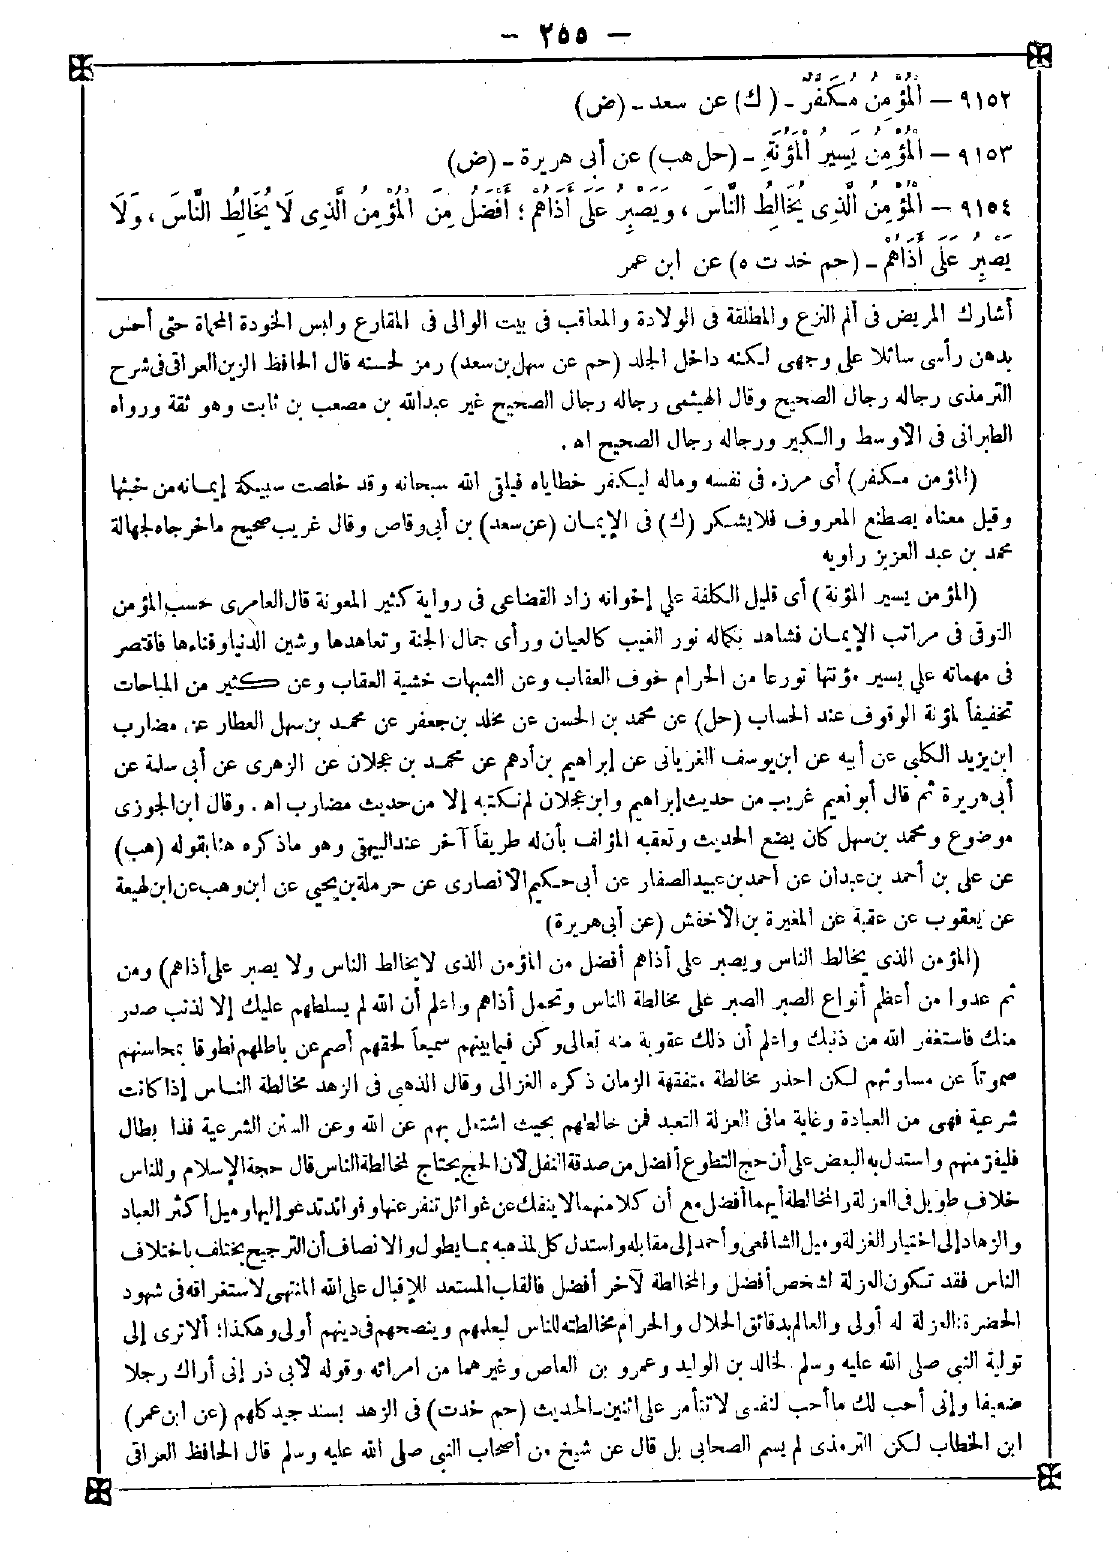 — ٢٥٥ —
٩١٥٢ — الْمُؤْمِنُ مُكَفَّرٌ - (ك) عن سعد - (ض)
٩١٥٣ — الْمُؤْمِنُ يَسِيرُ الْمَؤُنَةِ - (حل هب) عن أبى هريرة - (ض)
٩١٥٤ — الْمُؤْمِنُ الَّذِى يُخَالِطُ النَّاسَ ، وَيَصْبِرُ عَلَى أَذَاهُمْ ؛ أَفْضَلُ مِنَ الْمُؤْمِنُ الَّذِى لَا يُخَالِطُ النَّاسَ ، وَلَا
يَصْبِرُ عَلَى أَذَاهُمْ - (حم خد ت ه) عن ابن عمر
أشارك المريض فى ألم النزع والمطلقة فى الولادة والمعاقب فى بيت الوالى فى المقارع ولبس الخودة المحماة حتى أحس
بدهن رأسى سائلا على وجهى لكنه داخل الجلد (حم عن سهل بن سعد) رمز لحسنه قال الحافظ الزين العراقى فى شرح
الترمذى رجاله رجال الصحيح وقال الهيثمى رجاله رجال الصحيح غير عبدالله بن مصعب بن ثابت وهو ثقة ورواه
الطبرانى فى الأوسط والكبير ورجاله رجال الصحيح اه .
(المؤمن مكفر) أى مرزء فى نفسه وماله ليكفر خطاياه فيلقى الله سبحانه وقد خلصت سبيكة إيمانه من خبثها
وقيل معناه يصطنع المعروف فلا يشكر (ك) فى الإيمان (عن سعد) بن أبى وقاص وقال غريب صحيح ما خرجاه لجهالة
محمد بن عبد العزيز راويه
(المؤمن يسير المؤنة) أى قليل الكلفة على إخوانه زاد القضاعى فى رواية كثير المعونة قال العامرى حسب المؤمن
الترقى فى مراتب الإيمان فشاهد بكماله نور الغيب كالعيان ورأى جمال الجنة وتعاهدها وشين الدنيا وفناءها فاقتصر
فى مهماته على يسير مؤنتها تورعا من الحرام خوف العقاب وعن الشبهات خشية العقاب وعن كثير من المباحات
تخفيفاً لمؤنة الوقوف عند الحساب (حل) عن محمد بن الحسن عن مخلد بن جعفر عن محمد بن سهل العطار عن مضارب
ابن يزيد الكلبى عن أبيه عن ابن يوسف الفريانى عن إبراهيم بن أدهم عن محمد بن عجلان عن الزهرى عن أبى سلمة عن
أبى هريرة ثم قال أبو نعيم غريب من حديث إبراهيم وابن عجلان لم نكتبه إلا من حديث مضارب اه . وقال ابن الجوزى
موضوع ومحمد بن سهل كان يضع الحديث وتعقبه المؤلف بأن له طريقاً آخر عند البيهقى وهو ما ذكره هنا بقوله (هب)
عن على بن أحمد بن عبدان عن أحمد بن عبيد الصفار عن أبى حكيم الأنصارى عن حرملة بن يحيى عن ابن وهب عن ابن لهيعة
عن يعقوب عن عقبة عن المغيرة بن الأخفش (عن أبى هريرة)
(المؤمن الذى يخالط الناس ويصبر على أذاهم أفضل من المؤمن الذى لا يخالط الناس ولا يصبر على أذاهم) ومن
ثم عدوا من أعظم أنواع الصبر الصبر على مخالطة الناس وتحمل أذاهم واعلم أن الله لم يسلطهم عليك إلا لذنب صدر
منك فاستغفر الله من ذنبك واعلم أن ذلك عقوبة منه تعالى وكن فيما بينهم سميعاً لحقهم أصم عن باطلهم نطوقا بمحاسنهم
صموتاً عن مساوئهم لكن احذر مخالطة متفقهة الزمان ذكره الغزالى وقال الذهبى فى الزهد مخالطة الناس إذا كانت
شرعية فهى من العبادة وغاية ما فى العزلة التعبد فمن خالطهم بحيث اشتغل بهم عن الله وعن السنن الشرعية فذا بطال
فليفر منهم واستدل به البعض على أن حج التطوع أفضل من صدقة النفل لأن الحج يحتاج لمخالطة الناس قال حجة الإسلام وللناس
خلاف طويل فى العزلة والمخالطة أيهما أفضل مع أن كلا منهما لا ينفك عن غوائل تنفر عنها وفوائد تدعو إليها وميل أكثر العباد
والزهاد إلى اختيار العزلة وميل الشافعى وأحمد إلى مقابله واستدل كل لمذهبه بما يطول والانصاف أن الترجيح يختلف باختلاف
الناس فقد تكون العزلة لشخص أفضل والمخالطة لآخر أفضل فالقلب المستعد للإقبال على الله المنتهى لاستغراقه فى شهود
الحضرة العزلة له أولى والعالم بدقائق الحلال والحرام مخالطته للناس ليعلمهم وينصحهم فى دينهم أولى وهكذا؛ ألا ترى إلى
تولية النبى صلى الله عليه وسلم لخالد بن الوليد وعمرو بن العاص وغيرهما من امرائه وقوله لأبى ذر إنى أراك رجلا
ضعيفا وإنى أحب لك ما أحب لنفسى لا تتأمر على اثنين - الحديث (حم خدت) فى الزهد بسند جيد كلهم (عن ابن عمر)
ابن الخطاب لكن الترمذى لم يسم الصحابى بل قال عن شيخ من أصحاب النبى صلى الله عليه وسلم قال الحافظ العراقى